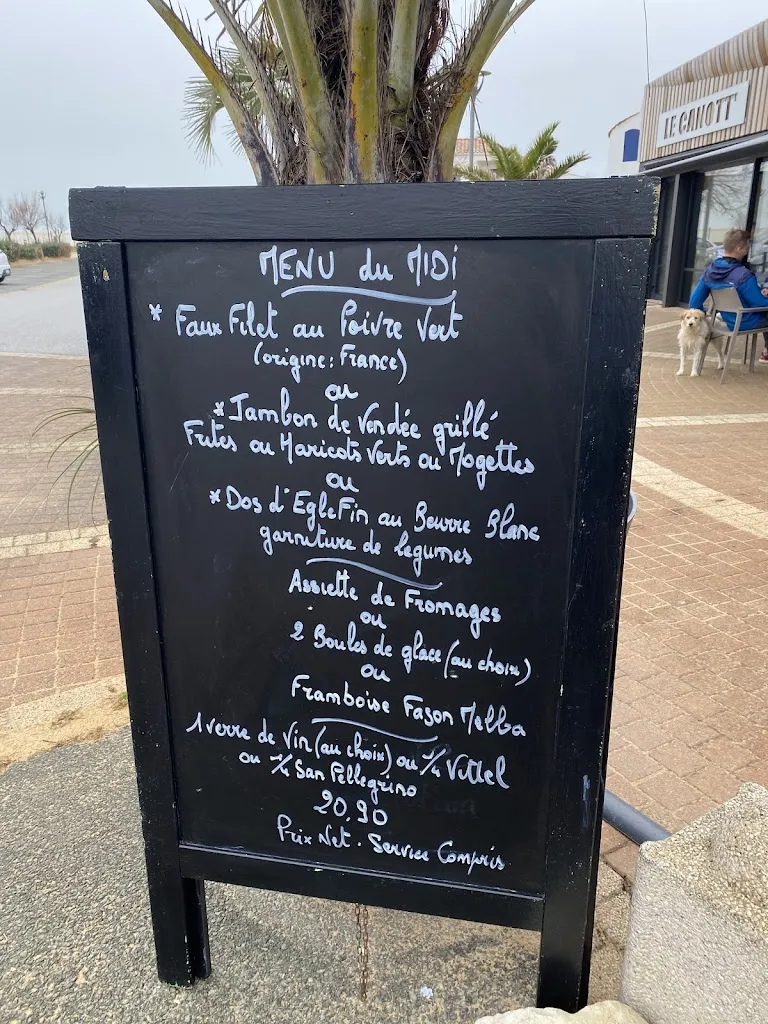 LE CANOTT'
MENU du MIDI
* Faux Filet au Poivre Vert
(origine : France)
ou
* Jambon de Vendée grillé
Frites ou Haricots Verts ou Mogettes
ou
* Dos d'EgleFin au Beurre Blanc
garniture de legumes
Assiette de Fromages
ou
2 Boules de glace (au choix)
ou
Framboise Façon Melba
1 verre de Vin (au choix) ou 1/4 Vittel
ou 1/4 San Pellegrino
20.90
Prix Net . Service Compris